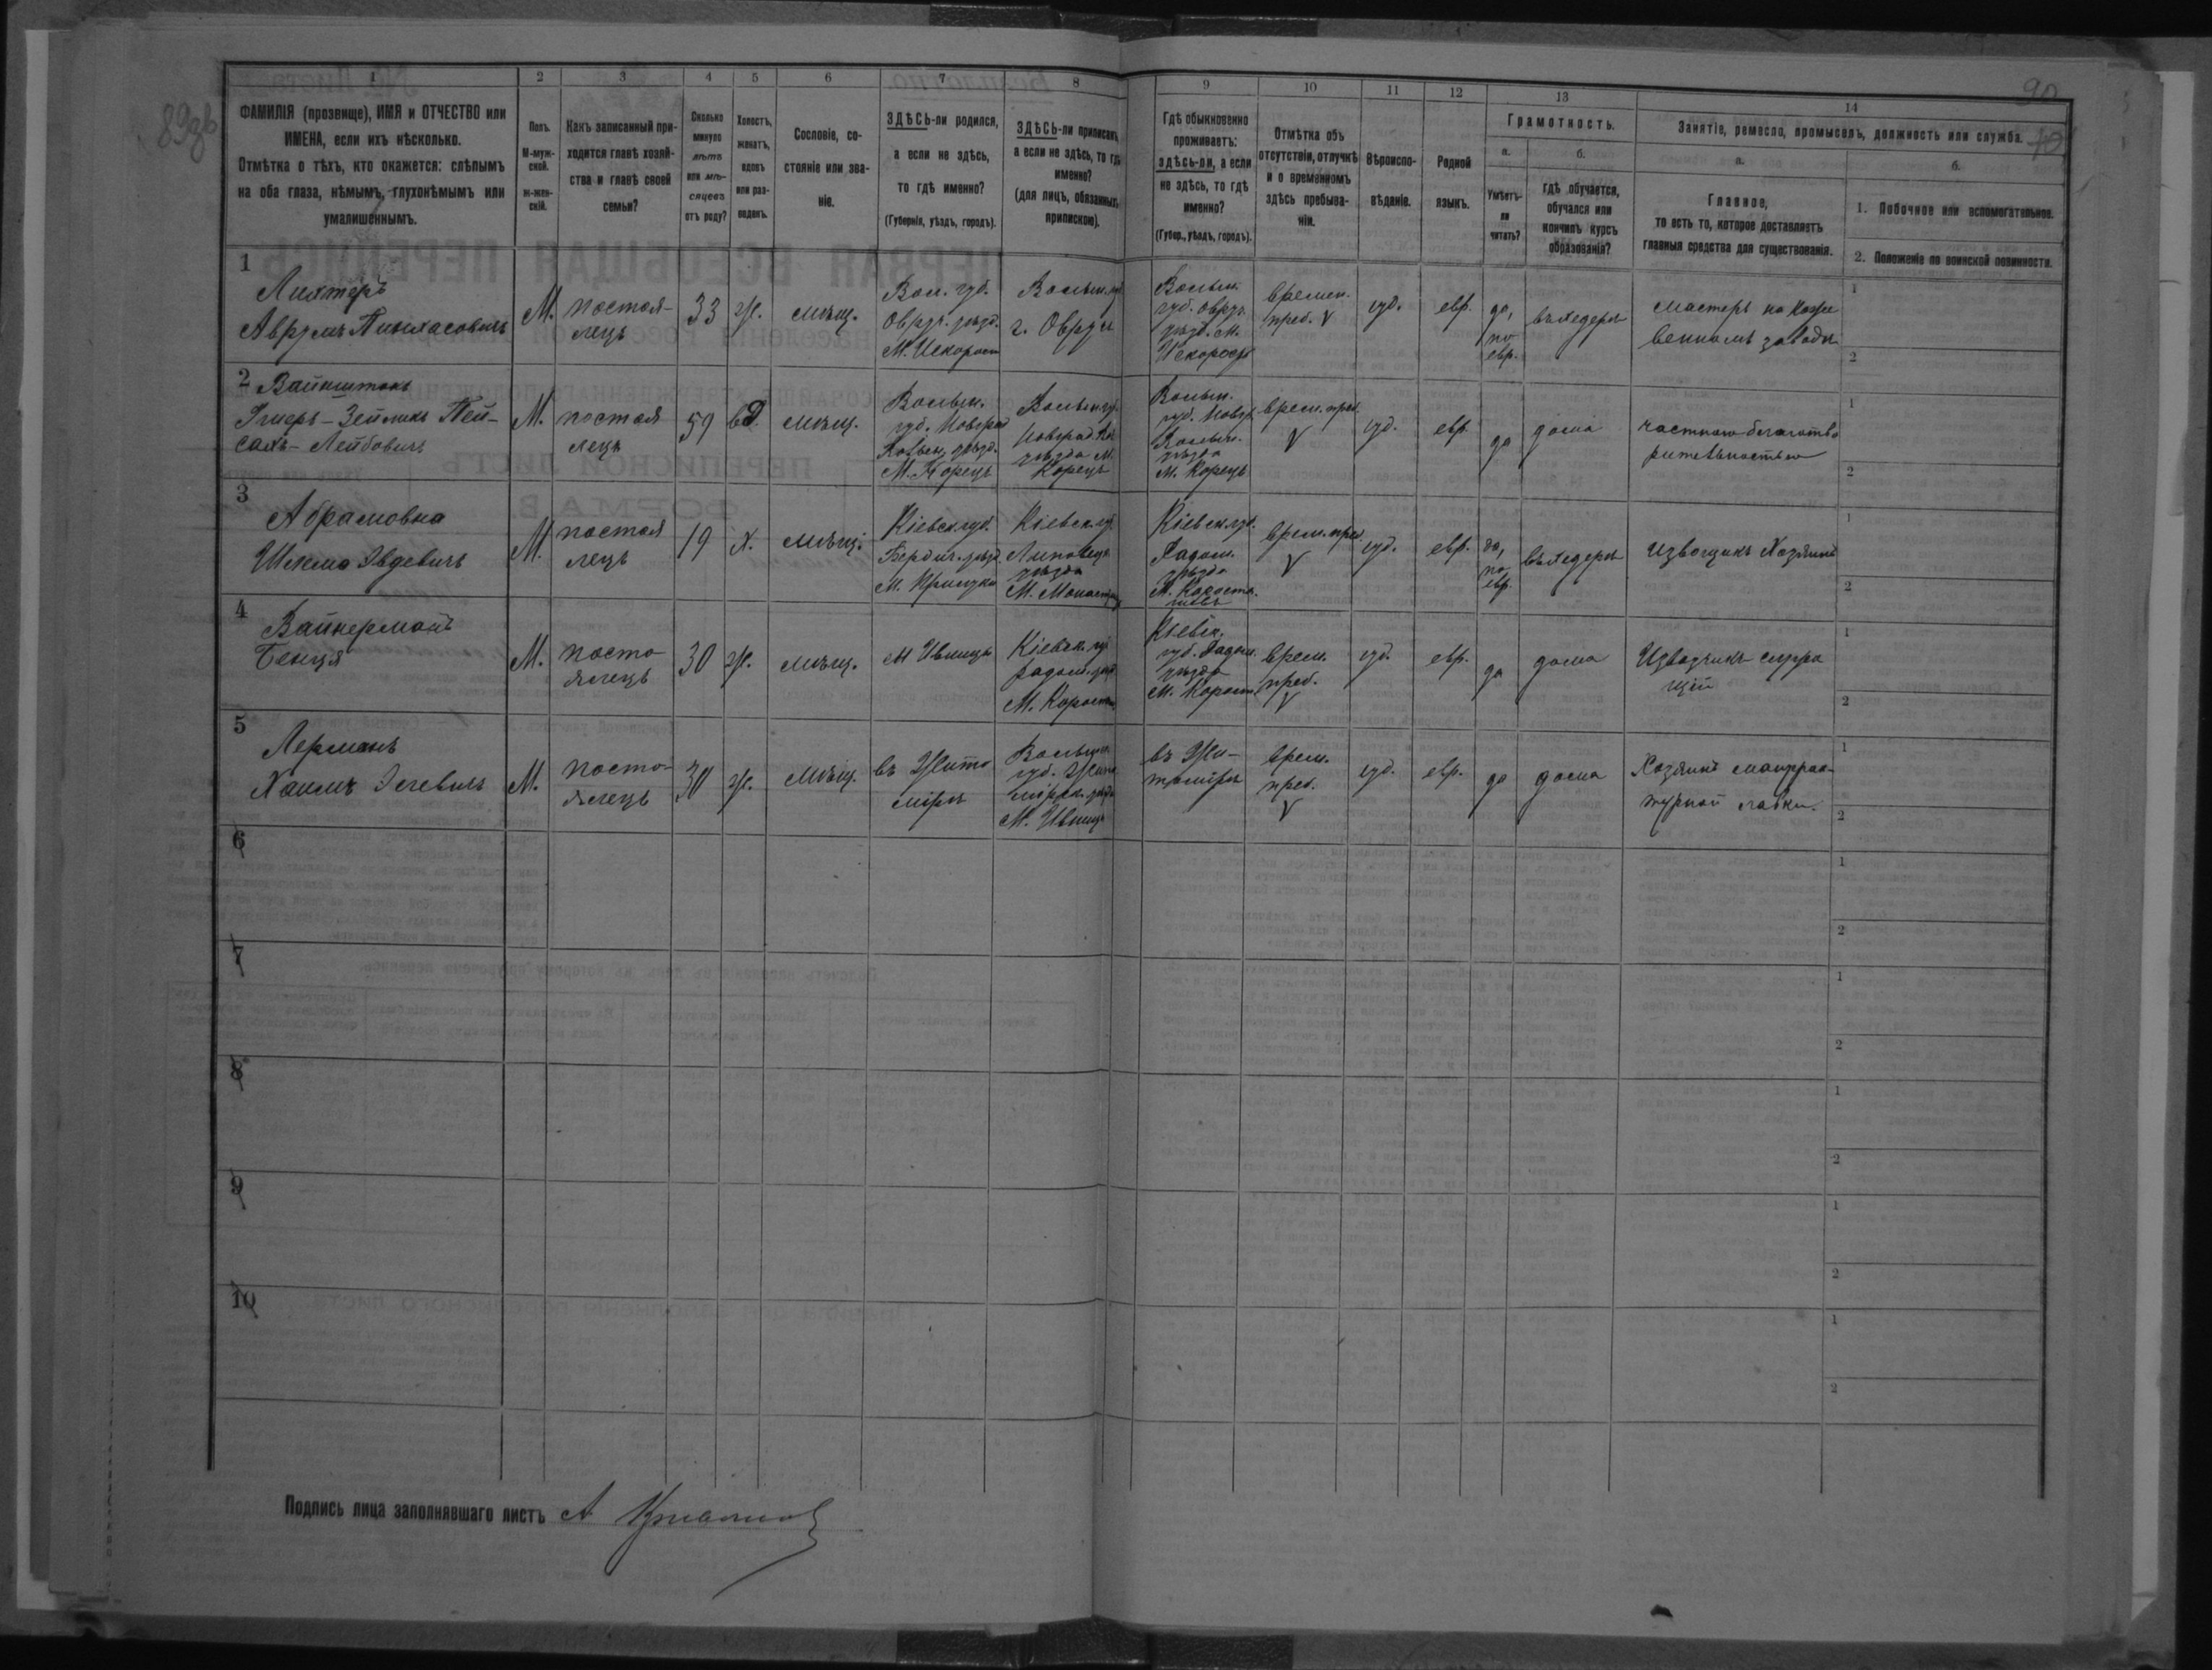 89об
90
1
2
3
4
5
6
7
8
9
10
11
12
13
14
ФАМИЛІЯ (прозвище), ИМЯ и ОТЧЕСТВО или
ИМЕНА, если ихъ нѣсколько.
Отмѣтка о тѣхъ, кто окажется: слѣпымъ
на оба глаза, нѣмымъ, глухонѣмымъ или
умалишеннымъ.
Полъ.
М-муж-
ской.
ж-жен-
скій.
Какъ записанный при-
ходится главѣ хозяй-
ства и главѣ своей
семьи?
Сколько
минуло
лѣтъ
или мѣ-
сяцевъ
отъ роду?
Холостъ,
женатъ,
вдовъ
или раз-
веденъ.
Сословіе, со-
стояніе или зва-
ніе.
ЗДѢСЬ-ли родился,
а если не здѣсь,
то гдѣ именно?
(Губернія, уѣздъ, городъ).
ЗДѢСЬ-ли приписанъ,
а если не здѣсь, то гдѣ
именно?
(для лицъ, обязанныхъ
припискою).
Гдѣ обыкновенно
проживаетъ:
здѣсь-ли, а если
не здѣсь, то гдѣ
именно?
(Губер., уѣздъ, городъ).
Отмѣтка объ
отсутствіи, отлучкѣ
и о временномъ
здѣсь пребыва-
ніи.
Вѣроиспо-
вѣданіе.
Родной
языкъ.
Грамотность.
а.
Умѣетъ-
ли
читать?
б.
Гдѣ обучается,
обучался или
кончилъ курсъ
образованія?
Занятіе, ремесло, промыселъ, должность или служба.
а.
Главное,
то есть то, которое доставляетъ
главныя средства для существованія.
б.
1. Побочное или вспомогательное.
2. Положеніе по воинской повинности.
1
Лихтеръ
Аврумъ Пинхасовичъ
М.
постоя-
лецъ
33
ж.
мѣщ.
Вол. губ.
Овруч. уѣзд.
М. Искорост
Волын. губ
г. Овручъ
Волын.
губ. Овруч.
уѣзд. М.
Искорость
времен.
преб. V
іуд.
евр.
да,
по
евр.
въ хедерѣ
мастеръ на коже
венномъ заводѣ
1
2
2
Вайнштокъ
Зейликъ Пей-
сахъ-Лейбовичъ
М.
постоя
лецъ
59
вд.
мѣщ.
Волын.
губ. Новград
Волын. уѣзд.
М. Корецъ
Волын. гу.
Новград. Вол
уѣзда М.
Корецъ
Волын.
губ. Новгр.
Волын.
уѣзда
М. Корецъ
врем. преб.
V
іуд.
евр.
да
дома
частною благотво
рительностью
1
2
3
Абрамовка
Шлема Овдевичъ
М.
постоя
лецъ
19
х.
мѣщ.
Кіевск. губ.
Бердич. уѣзд.
М. Прилуки
Кіевск. губ.
Липовец.
уѣзда
М. Монастыр
Кіевск. губ.
Радом.
уѣзда
М. Коросты
шевъ
врем. преб.
V
іуд.
евр.
да,
по
евр.
въ хедерѣ
извощикъ хозяинъ
1
2
4
Вайнерманъ
Бенця
М.
посто-
ялецъ
30
ж.
мѣщ.
М Ивницѣ
Кіевск. гу
радом. уѣзд
М. Коросты
Кіевск.
губ. Радом.
уѣзда
М. Корост.
врем.
преб.
V
іуд.
евр.
да
дома
Извозчикъ служа
щій
1
2
5
Лерманъ
Хаимъ
М.
посто-
ялецъ
30
ж.
мѣщ.
въ Жито
мірѣ
Волын.
губ. Жито
мірск. уѣзд
М. Ивница
въ Жи-
томірѣ
врем.
преб.
V
іуд.
евр.
да
дома
Хозяинъ мануфак-
турной лавки.
1
2
6
1
2
7
1
2
8
1
2
9
1
2
10
1
2
Подпись лица заполнявшаго листъ А